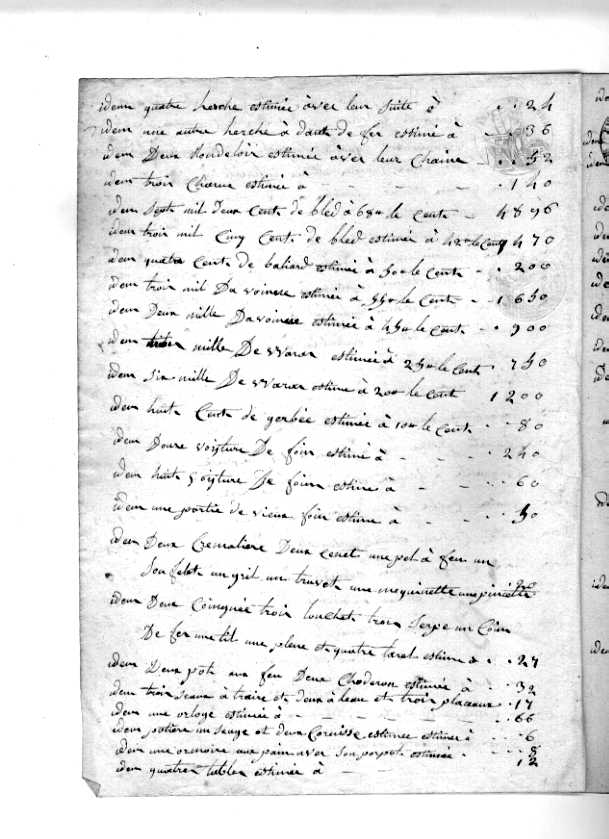 idem quatre herche estimée aver leur suite à 24
idem une autre herche à dant de fer estimé à 36
idem Deux estimée aver leur Chaine 52
idem troix Charue estimée à 140
idem Sept mil Deux Cent de bled à 68 le Cent 4896
idem troix mil Cinq Cent de bled estimée à 42 le Cent 1470
idem quatre Cent de baliard estimée à 50 le Cent 200
idem troix mil Davoinere estimée à 55 le Cent 1650
idem Deux mille Davoinere estimée à 45 le Cent 900
idem mille De Waras estimée à 25 le Cent 750
idem Six mille De Waras estime à 20 le Cent 1200
idem huit Cent de gerbée estimée à 10 le Cent 80
idem Douze voiture De foin estimé à 240
idem huit voiture De foin estime à 60
idem une partie de vieux foin estime à 50
idem Deux Cremaliere Deux une pel à feu un
Souflet un gril un une une pincette
idem Deux Coingnée troix louchet troix Serpe un Coin
De fer une et quatre tarel estime à 27
idem Deux pots au feu Deux Choderon estimée à 32
idem troix Seaux à traire et deux à leau et troix 17
idem une orloge estimée à 66
idem un et deux estimée à 6
idem une ormoire aux pain aver Son estimée 8
idem quatres tables estimée à 12